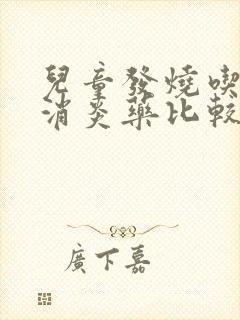 兒童發燒喫
消炎藥比較
廣下嘉